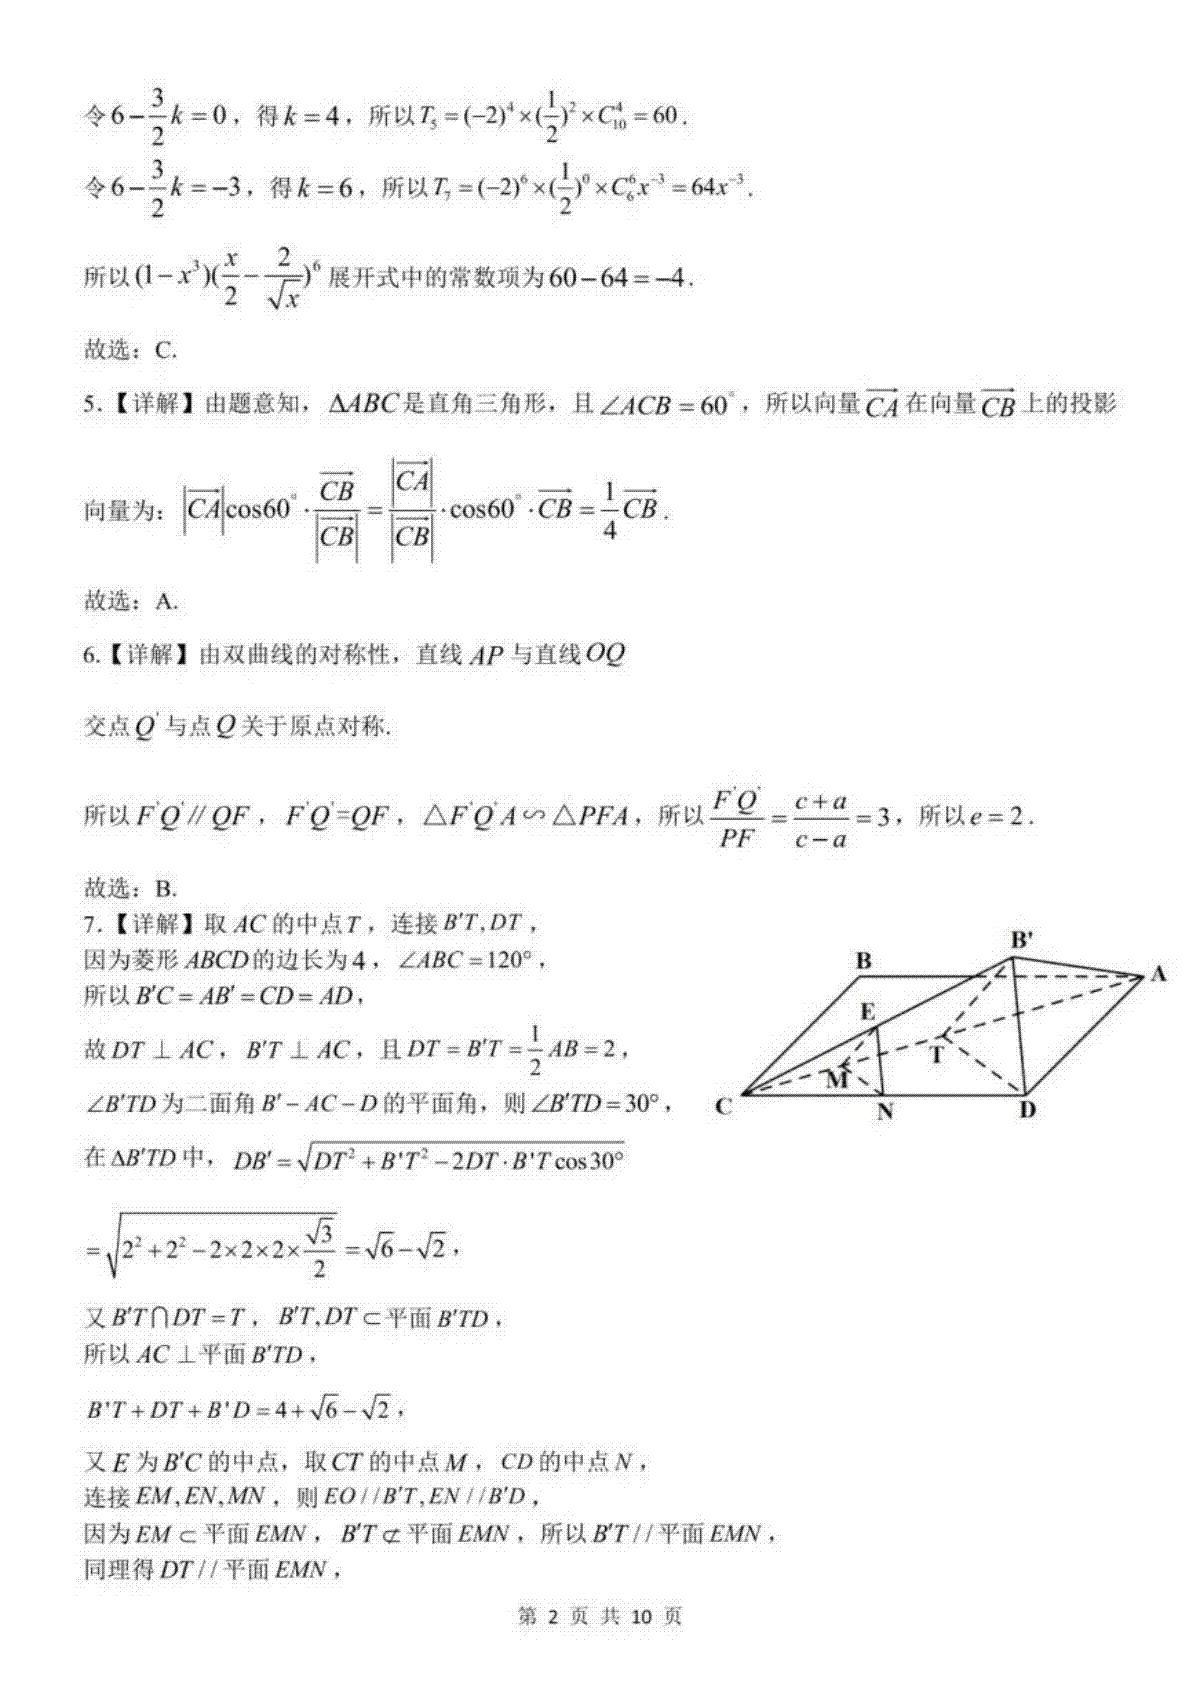 令 6 − 3/2 k = 0，得 k = 4，所以 T₅ = (−2)⁴ × (1/2)² × C₁₀⁴ = 60．
令 6 − 3/2 k = −3，得 k = 6，所以 T₇ = (−2)⁶ × (1/2)⁰ × C₆⁶x⁻³ = 64x⁻³．
所以 (1 − x³)(x/2 − 2/√x)⁶ 展开式中的常数项为 60 − 64 = −4．
故选：C.
5.【详解】由题意知，ΔABC 是直角三角形，且 ∠ACB = 60°，所以向量 \overrightarrow{CA} 在向量 \overrightarrow{CB} 上的投影
向量为：|\overrightarrow{CA}|cos60° · \overrightarrow{CB}/|\overrightarrow{CB}| = |\overrightarrow{CA}|/|\overrightarrow{CB}| · cos60° · \overrightarrow{CB} = 1/4 \overrightarrow{CB}．
故选：A.
6.【详解】由双曲线的对称性，直线 AP 与直线 OQ
交点 Q' 与点 Q 关于原点对称.
所以 F'Q' // QF，F'Q'=QF，△F'Q'A ∽ △PFA，所以 F'Q'/PF = (c+a)/(c−a) = 3，所以 e = 2．
故选：B.
7.【详解】取 AC 的中点 T，连接 B′T, DT，
因为菱形 ABCD 的边长为 4，∠ABC = 120°，
所以 B′C = AB′ = CD = AD，
故 DT ⊥ AC，B′T ⊥ AC，且 DT = B′T = 1/2 AB = 2，
∠B′TD 为二面角 B′ − AC − D 的平面角，则 ∠B′TD = 30°，
在 ΔB′TD 中，DB′ = √(DT² + B'T² − 2DT · B'T cos30°)
= √(2² + 2² − 2×2×2×√3/2) = √6 − √2，
又 B′T ∩ DT = T，B′T, DT ⊂ 平面 B′TD，
所以 AC ⊥ 平面 B′TD，
B'T + DT + B'D = 4 + √6 − √2，
又 E 为 B′C 的中点，取 CT 的中点 M，CD 的中点 N，
连接 EM, EN, MN，则 EO / /B′T, EN / /B′D，
因为 EM ⊂ 平面 EMN，B′T ⊄ 平面 EMN，所以 B′T / / 平面 EMN，
同理得 DT / / 平面 EMN，
B'
B
A
E
T
M
C
N
D
第 2 页 共 10 页